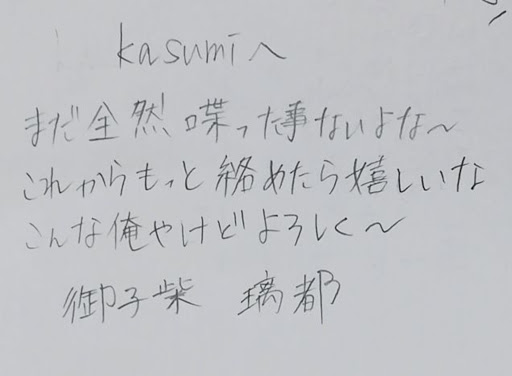 kasumiへ
まだ全然喋った事ないよな〜
これからもっと絡めたら嬉しいな
こんな俺やけどよろしく〜
御子柴 璃都